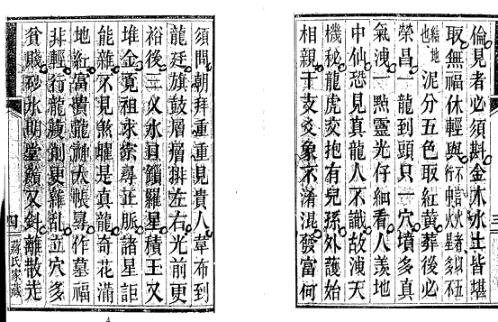 倫見者必須斟金木水土皆堪
取無福休輕與
結地也泥分五色取紅黃葬後必
榮昌一龍到頭只一穴墳多真
氣洩一點靈光仔細看人羡地
中仙恐見真龍人不識故演天
機秘龍虎交抱有兒孫外護始
相親干支爻象不淆混發富何
三
須問朝拜重重見貴人韋布到
龍廷旗鼓層層排左右光前更
裕後三义水口鎖羅星積玉又
堆金覔祖求宗尋正脈諸星詎
能雜不見煞曜是真龍奇花滿
地紅富貴龍神大帳㝷作墓福
非輕行龍藏劍更羅乱立穴多
貧賤砂水朝堂蕩又斜離散走
四 蘇氏家藏
4